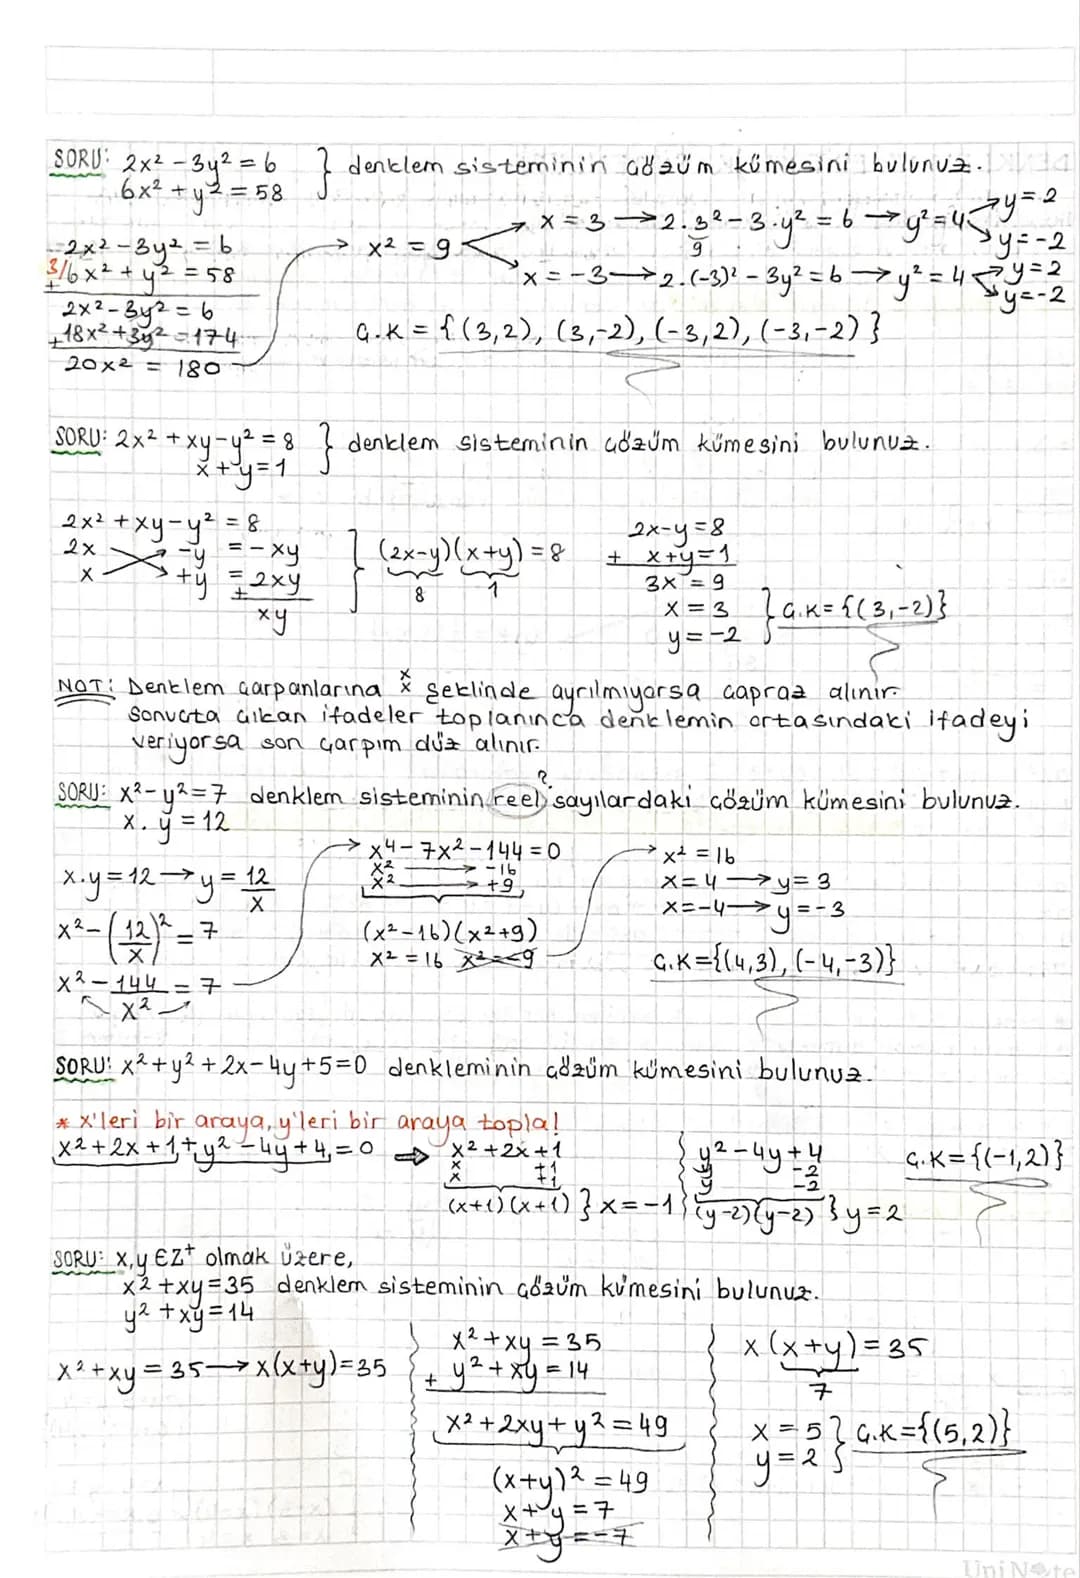 SORU: 2x² - 3y² = 6 } denklem sisteminin çözüm kümesini bulunuz.
6x² + y² = 58
2x² - 3y² = 6
3/ 6x² + y² = 58
+
2x² - 3y² = 6
+ 18x² + 3y² = 174
20x² = 180
→ x² = 9
x = 3 → 2.3² - 3.y² = 6 → y² = 4 y = 2
9
y = -2
x = -3 → 2.(-3)² - 3y² = 6 → y² = 4 y = 2
y = -2
Ç.K = {(3,2), (3,-2), (-3,2), (-3,-2)}
SORU: 2x² + xy - y² = 8 } denklem sisteminin çözüm kümesini bulunuz.
x + y = 1
2x² + xy - y² = 8
2x -y = - xy
x +y = 2xy
+
xy
(2x-y)(x+y) = 8
8 1
2x - y = 8
+ x + y = 1
3x = 9
x = 3
y = -2
Ç.K = {(3,-2)}
NOT: Denklem çarpanlarına x x şeklinde ayrılmıyorsa çapraz alınır.
Sonuçta çıkan ifadeler toplanınca denklemin ortasındaki ifadeyi
veriyorsa son çarpım düz alınır.
?
SORU: x² - y² = 7 denklem sisteminin reel sayılardaki çözüm kümesini bulunuz.
x . y = 12
x.y = 12 → y = 12/x
x² - (12/x)² = 7
x² - 144/x² = 7
→ x⁴ - 7x² - 144 = 0
x² → -16
x² → +9
(x² - 16)(x² + 9)
x² = 16 x² = -9
→ x² = 16
x = 4 → y = 3
x = -4 → y = -3
Ç.K = {(4,3), (-4,-3)}
SORU: x² + y² + 2x - 4y + 5 = 0 denkleminin çözüm kümesini bulunuz.
* x'leri bir araya, y'leri bir araya topla!
x² + 2x + 1 + y² - 4y + 4 = 0 ⇒
x² + 2x + 1
x +1
x +1
(x+1)(x+1) } x = -1
y² - 4y + 4
y -2
y -2
(y-2)(y-2) } y = 2
Ç.K = {(-1,2)}
SORU: x,y ∈ Z⁺ olmak üzere,
x² + xy = 35 denklem sisteminin çözüm kümesini bulunuz.
y² + xy = 14
x² + xy = 35 → x(x+y) = 35
x² + xy = 35
+ y² + xy = 14
x² + 2xy + y² = 49
(x+y)² = 49
x + y = 7
x + y = -7
x (x+y) = 35
7
x = 5
y = 2
Ç.K = {(5,2)}
UniNote